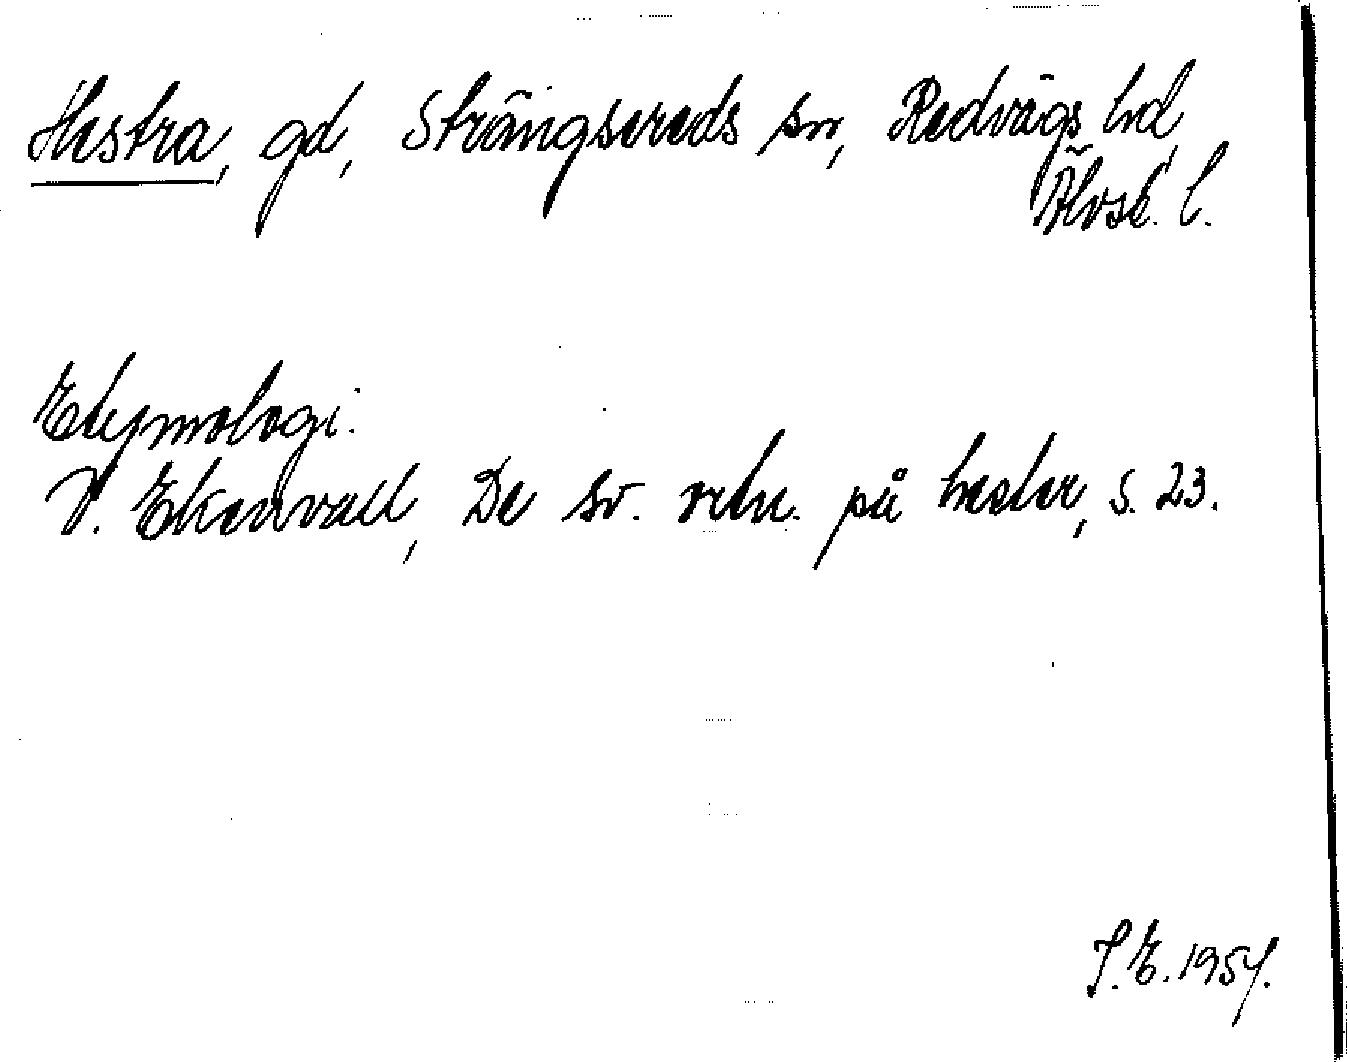 Hestra, gd, Strängsereds sn, Redvägs hd,
Älvsb. l.
Etymologi.
V. Ekenvall, De sv. ortn. på hester, s. 23.
I.E. 1957.